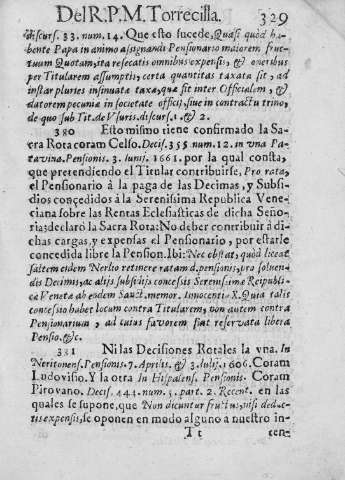 Del R. P. M. Torrecilla. 329
discurs. 33. num. 14. Que esto sucede, Quasi quòd ha-
bente Papa in animo assignandi Pensionario maiorem fruc-
tuum Quotam, ita resecatis omnibus expensis, & oneribus
per Titularem assumptis, certa quantitas taxata sit, ad
instar pluries insinuatæ taxæ, quæ sit inter Officialem, &
datorem pecuniæ in societate officij, sive in contractu trino,
de quo sub Tit. de Usuris. discurs. 1. & 2.
380 Esto mismo tiene confirmado la Sa-
cra Rota coram Celso. Decis. 355 num. 12. in vna Pa-
tavina. Pensionis. 3. Iunij. 1661. por la qual consta,
que pretendiendo el Titular contribuirse, Pro rata,
el Pensionario à la paga de las Decimas, y Subsi-
dios conçedidos à la Serenissima Republica Vene-
ciana sobre las Rentas Eclesiasticas de dicha Seño-
ria; declarò la Sacra Rota: No deber contribuir à di-
chas cargas, y expensas el Pensionario, por estarle
concedida libre la Pension. Ibi: Nec obstat, quòd liceat
saltem eidem Nerlio retinere ratam d. pensionis, pro solven-
dis Decimis, ac alijs subsidijs concessis Serenissimæ Reipubli-
cæ Venetæ ab eodem Sanct. memor. Innocentio X. Quia talis
concessio habet locum contra Titularem, non autem contra
Pensionarium, ad cuius favorem fuit reservata libera
Pensio. &c.
381 Ni las Decisiones Rotales la vna. In
Neritonens. Pensionis. 7. Aprilis. & 3. Iulij. 1606. Coram
Ludovisio. Y la otra In Hispalens. Pensionis. Coram
Pirovano. Decis. 444. num. 5. part. 2. Recent. en las
quales se supone, que Non dicuntur fructus, nisi deduc-
tis expensis, se oponen en modo alguno à nuestro in-
Tt ten-